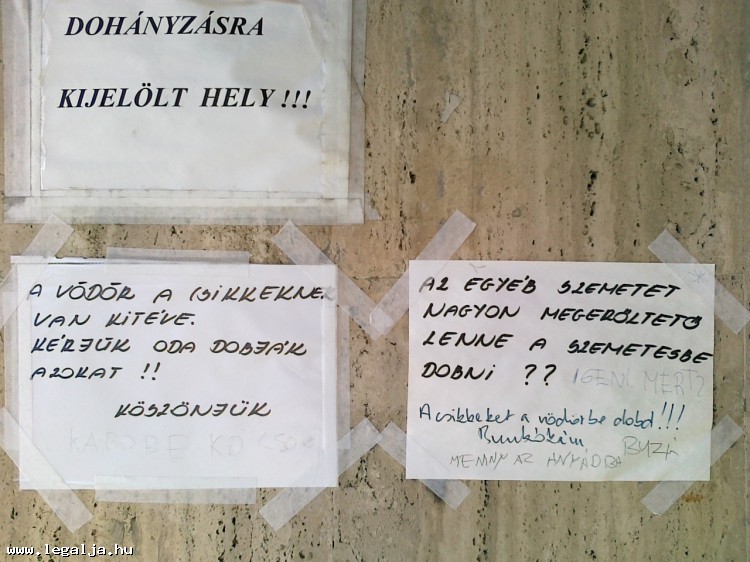 DOHÁNYZÁSRA
KIJELÖLT HELY !!!
A VÖDÖR A CSIKKEKNEK
VAN KITÉVE.
KÉRJÜK ODA DOBJÁK
AZOKAT !!
KÖSZÖNJÜK
AZ EGYÉB SZEMETET
NAGYON MEGERŐLTETŐ
LENNE A SZEMETESBE
DOBNI ??
IGEN, MERT?
A csikkeket a vödörbe dobd!!!
BUZI
MENNY AZ ANYÁDBA
www.legalja.hu